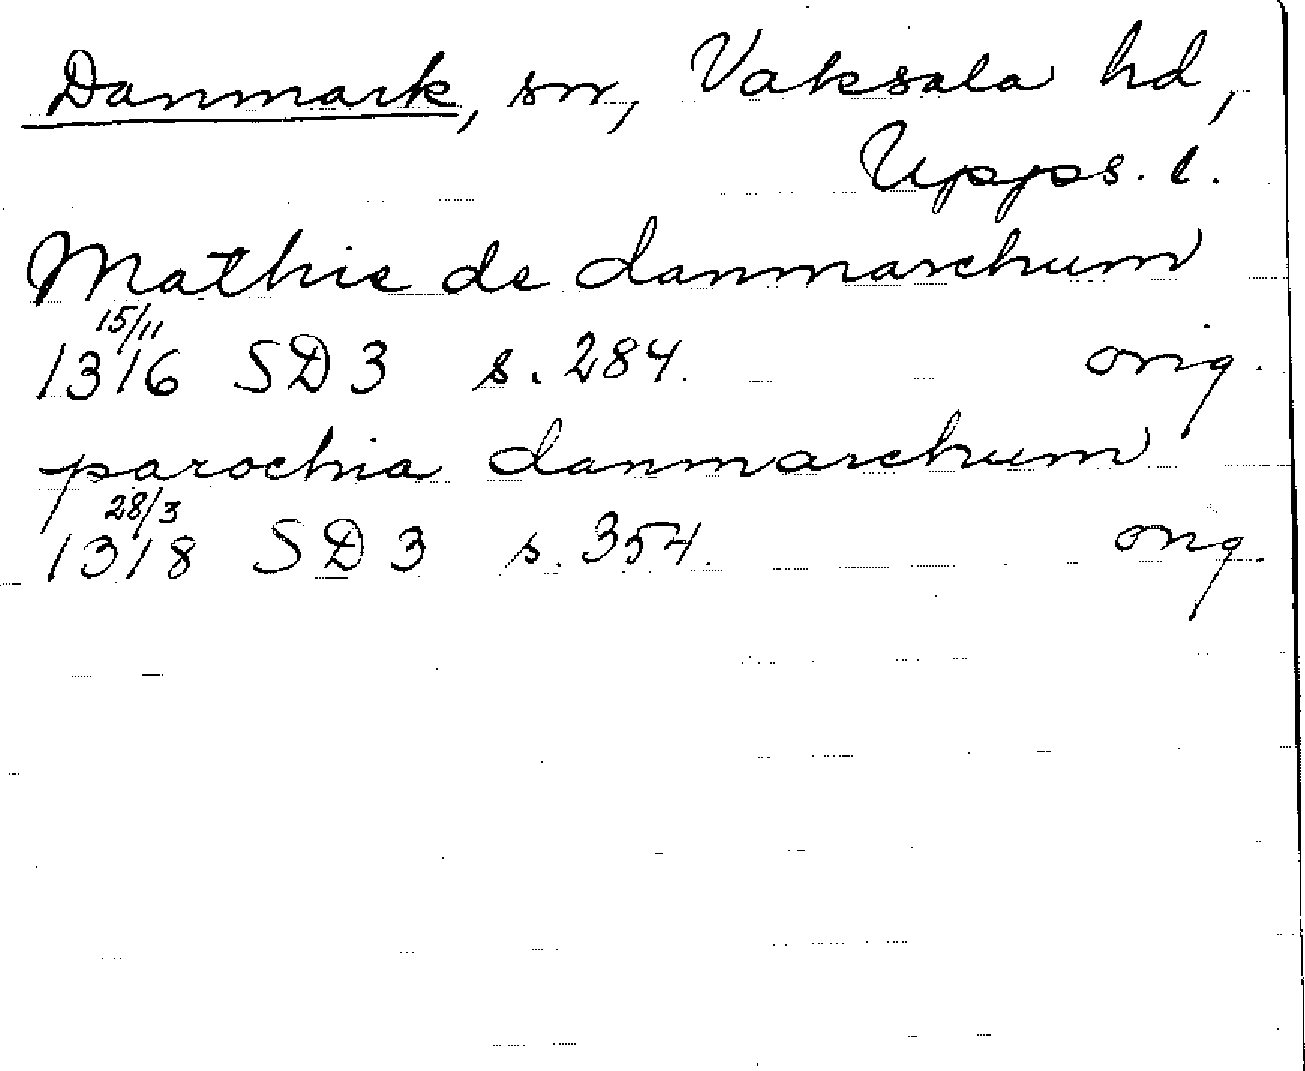 Danmark, sn, Vaksala hd,
Upps. l.
Mathie de danmarchum
15/11
1316 SD 3 s. 284. orig.
parochia danmarchum
28/3
1318 SD 3 s. 354. orig.